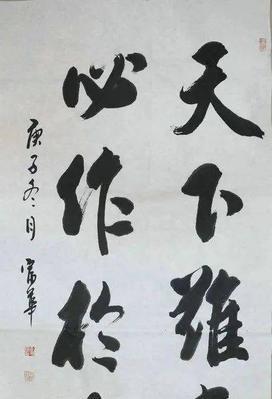 天下难
必作於
庚子冬月富华